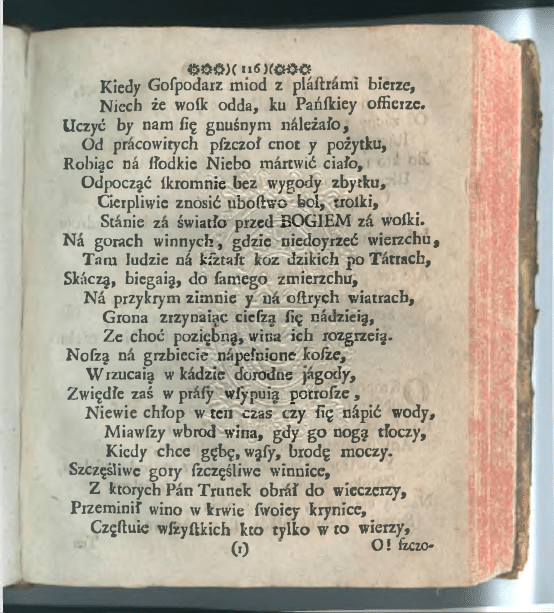 )( 116 )(
Kiedy Goſpodarz miod z pláſtrámi bierze,
Niech że woſk odda, ku Páńſkiey offierze.
Uczyć by nam ſię gnuśnym náleżało,
Od prácowitych pſzczoł cnot y pożytku,
Robiąc ná ſłodkie Niebo mártwić ciało,
Odpocząć ſkromnie bez wygody zbytku,
Cierpliwie znosić uboſtwo bol, troſki,
Stánie zá świátło przed BOGIEM zá woſki.
Ná gorach winnych, gdzie niedoyrzeć wierzchu,
Tam ludzie ná kſztałt koz dzikich po Tátrach,
Skáczą, biegaią, do ſamego zmierzchu,
Ná przykrym zimnie y ná oſtrych wiatrach,
Grona zrzynaiąc cieſzą ſię nádzieią,
Ze choć poziębną, wina ich rozgrzeią.
Noſzą ná grzbiecie nápełnione koſze,
Wrzucaią w kádzie dorodne jágody,
Zwiędłe zaś w práſy wſypuią potroſze,
Niewie chłop w ten czas czy ſię nápić wody,
Miawſzy wbrod wina, gdy go nogą tłoczy,
Kiedy chce gębę, wąſy, brodę moczy.
Szczęśliwe gory ſzczęśliwe winnice,
Z ktorych Pán Trunek obráł do wieczerzy,
Przeminił wino w krwie ſwoiey krynice,
Częſtuie wſzyſtkich kto tylko w to wierzy,
(1) O! ſzczo-